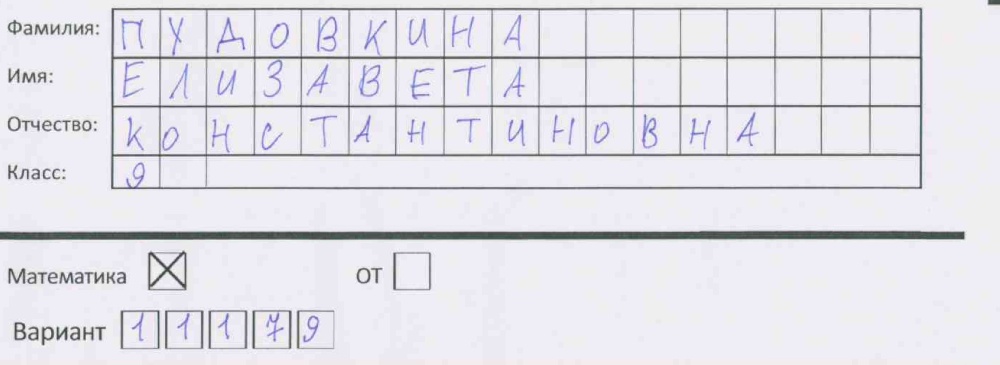 Фамилия: ПУДОВКИНА
Имя: ЕЛИЗАВЕТА
Отчество: КОНСТАНТИНОВНА
Класс: 9
Математика ☒ ОТ ☐
Вариант 11179